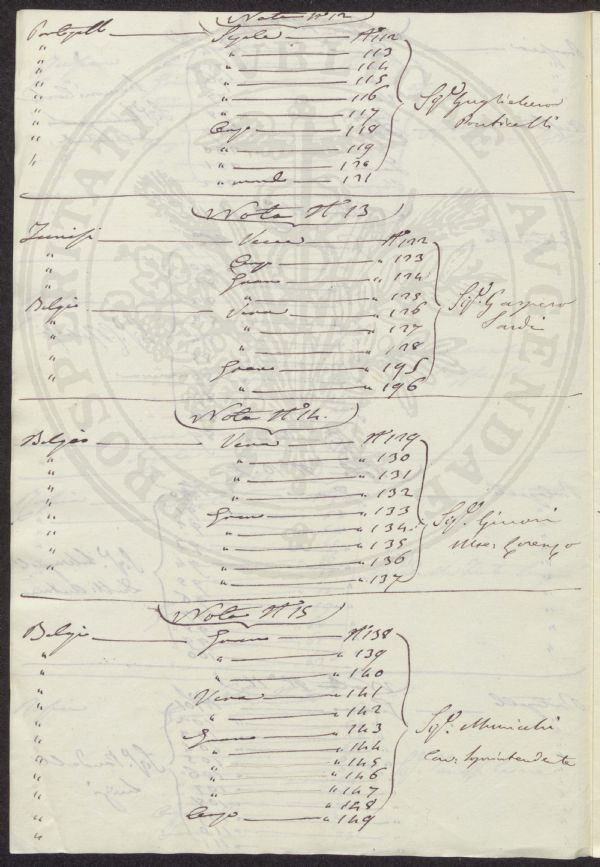 Nota N° 12
Portogallo Sigele N° 112
" " 113
" " 114
" " 115
" " 116
" " 117
" Cenge 118
" " 119
" " 120
" " 121
Sig.r Guglielmo
Ponticelli
Nota N° 13
Tunisi Vena N° 122
" Cenge " 123
" " 124
" " 125
Belgio Vena " 126
" " " 127
" " " 128
" " 195
" " " 196
Sig.r Gaspero
Sardi
Nota N° 14.
Belgio Vena N° 129
" " 130
" " 131
" " 132
" " 133
" " " 134
" " " 135
" " " 136
" " " 137
Sig.r Ginori
Mse Lorenzo
Nota N° 15
Belgio N° 138
" " " 139
" " " 140
" Vena " 141
" " " 142
" " 143
" " " 144
" " " 145
" " " 146
" " " 147
" " " 148
" Cenge " 149
"
Sig.r Municchi
Cav: Soprintendente
PROSPERITATI PUBLICAE AUGENDAE